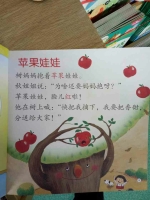 苹果娃娃
树妈妈抱着苹果娃娃。
蚯蚓细说："为啥还要妈妈抱呀？"
苹果娃娃，脸儿红啦！
他在树上喊："快把我摘下，我要把香甜
分送给大家！"